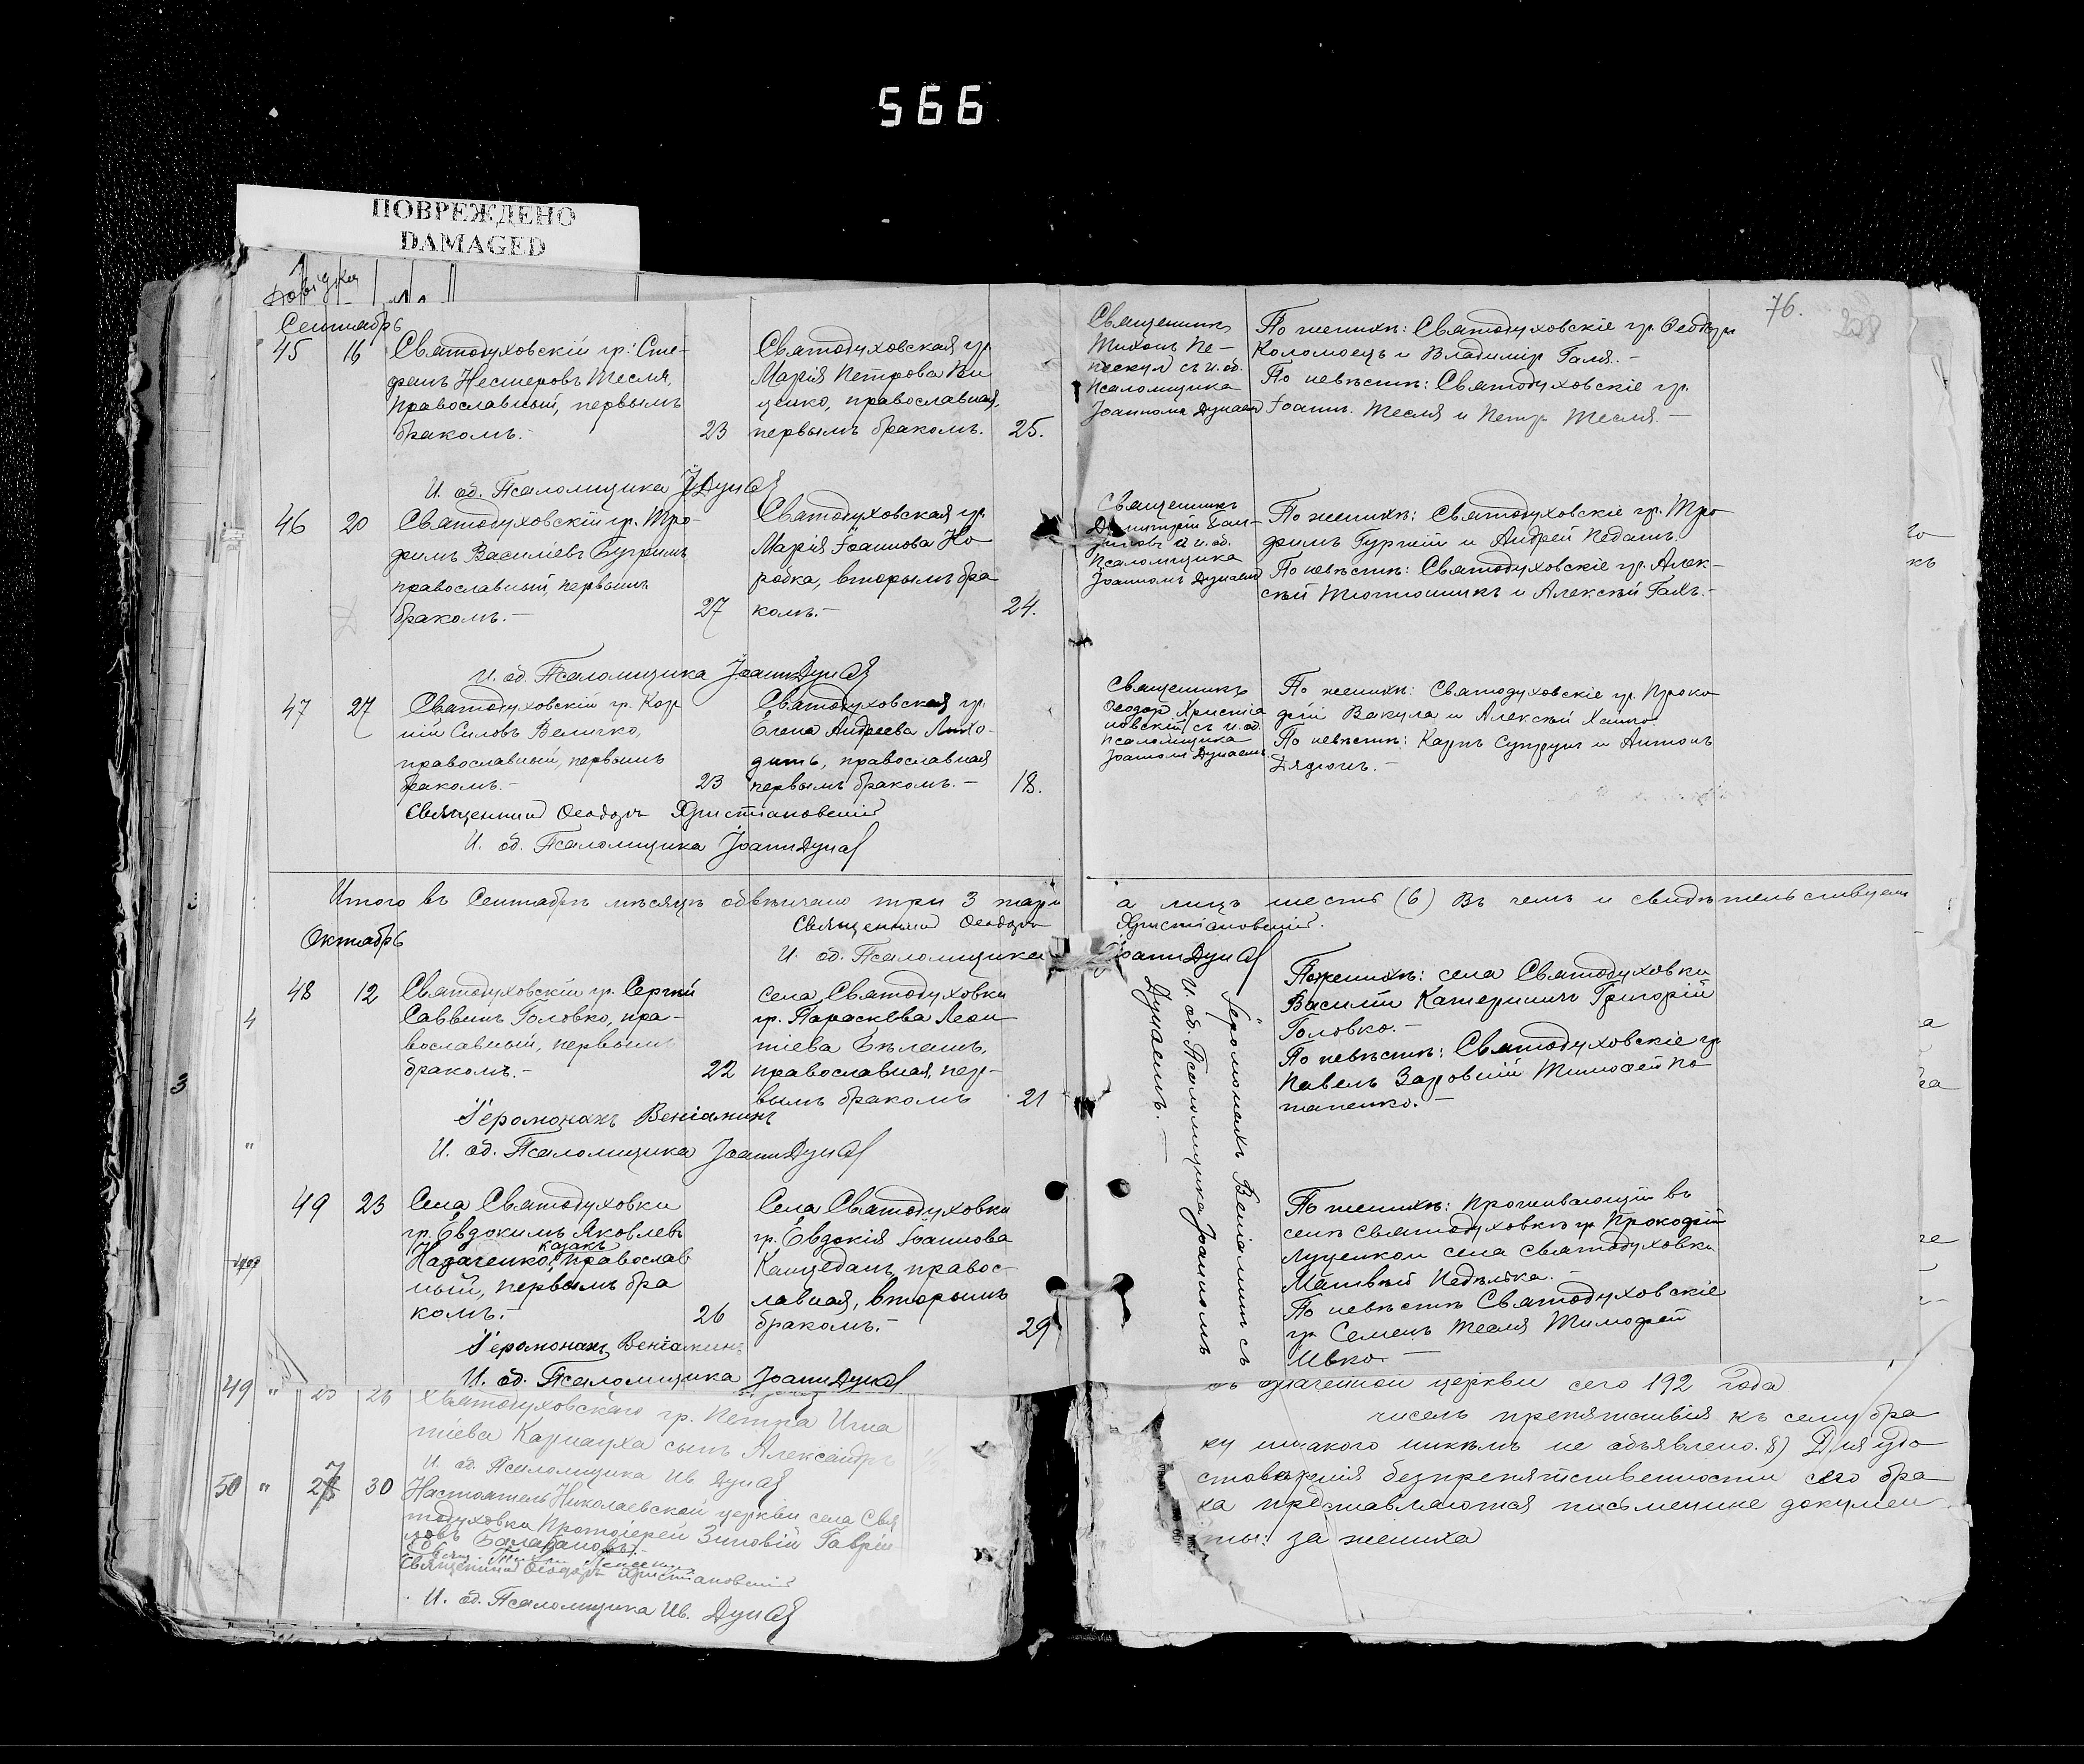 566
ПОВРЕЖДЕНО
DAMAGED
76.
Сентябрь
45 16 Святодуховскій гр. Сте-
фанъ Нестеровъ Тесля,
православный, первымъ
бракомъ.- 23
Святодуховская гр.
Марія Петрова Ки
ценко, православная,
первымъ бракомъ. 25.
Священникъ
Тихонъ Пе-
съ и. об.
псаломщика
Іоанномъ Дунаемъ
По женихѣ: Святодуховскіе гр. Ѳеодоръ
Коломоецъ и Владиміръ Галя.-
По невѣстѣ: Святодуховскіе гр.
Іоаннъ Тесля и Петръ Тесля.-
И. об. Псаломщика І Дунай
46 20 Святодуховскій гр. Тро-
фимъ Василіевъ
православный, первымъ
бракомъ.- 27
Святодуховская гр.
Марія Іоаннова Ко
робка, вторымъ бра
комъ.- 24.
Священникъ
Димитрій
и и. об.
псаломщика
Іоанномъ Дунаемъ
По женихѣ: Святодуховскіе гр. Тро
фимъ Гургій и Андрей
По невѣстѣ: Святодуховскіе гр. Алек-
сѣй Тютюнникъ и Алексѣй
И. об. Псаломщика Іоанн Дунай
47 27 Святодуховскій гр. Кор
ній Силовъ Величко,
православный, первымъ
бракомъ.- 23
Святодуховская гр.
Елена Андреева Лихо-
дить, православная
первымъ бракомъ.- 18.
Священникъ
Ѳеодоръ Христіа
новскій съ и. об.
псаломщика
Іоанномъ Дунаемъ
По женихѣ: Святодуховскіе гр. Проко
фій Вакула и Алексѣй
По невѣстѣ: Карпъ Супрунъ и Антонъ
Дядюнъ.-
Священникъ Ѳеодоръ Христіановскій
И. об. Псаломщика Іоанн Дунай
Итого въ Сентябрѣ мѣсяцѣ обвѣнчано три 3 пары
а лицъ шесть (6) Въ чемъ и свидѣтельствуемъ
Священникъ Ѳеодоръ Христіановскій.
И. об. Псаломщика Іоанн Дунай
Октябрь
48 12 Святодуховскій гр. Сергѣй
Саввинъ Головко, пра-
вославный, первымъ
бракомъ.- 22
села Святодуховки
гр. Параскева Леон
тіева Бѣлашъ,
православная, пер-
вымъ бракомъ 21
Іеромонахъ Веніаминъ съ
И. об. Псаломщика Іоанномъ
Дунаемъ.-
По женихѣ: села Святодуховки
Василій Катериничъ Григорій
Головко.-
По невѣстѣ: Святодуховскіе гр.
Павелъ Зар Тимофей По
тапенко.-
Іеромонахъ Веніаминъ
И. об. Псаломщика Іоанн Дунай
49 23 Села Святодуховки
гр. Евдокимъ Яковлевъ
казакъ
православ
ный, первымъ бра
комъ.- 26
Села Святодуховки
гр. Евдокія Іоаннова
правос-
лавная, вторымъ
бракомъ.- 29
По женихѣ: Проживающій въ
селѣ Святодуховкѣ гр. Прокофій
Луценко и села Святодуховки
Матвѣй Недѣлька.-
По невѣстѣ Святодуховскіе
гр. Семенъ Тесля Тимофей
Ивко.-
Іеромонахъ Веніаминъ
И. об. Псаломщика Іоанн Дунай
49 " 25
Святодуховскаго гр. Петра Игна
тіева Карнауха сынъ Александръ
И. об. Псаломщика Ив Дунай
50 " 27 30 Настоятель Николаевской церкви села Свя
тодуховки Протоіерей Зиновій Гавріи
ловъ
Священникъ Ѳеодоръ Христіановскій
И. об. Псаломщика Ив. Дунай
въ означенной церкви сего 192 года
чиселъ препятствія къ сему бра
ку никакого никѣмъ не объявлено. 8) Для удо
стовѣренія безпрепятственности сего бра
ка представляются письменные докумен
ты: за жениха